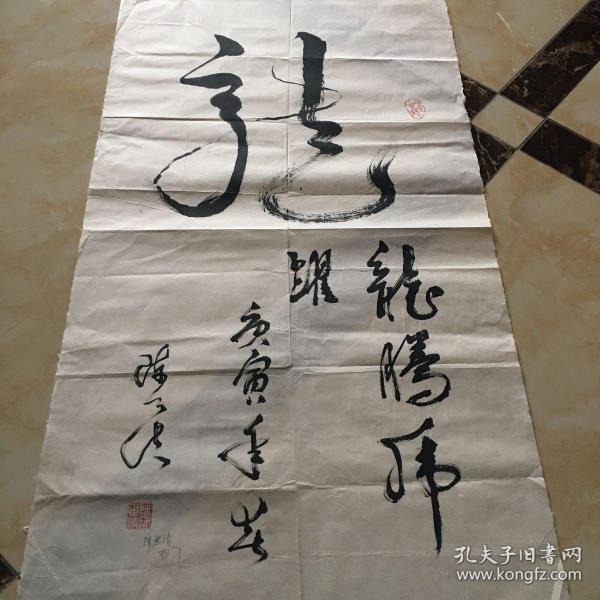 龍
龍騰虎
躍
庚寅年春
孔夫子旧书网
www.kongfz.com